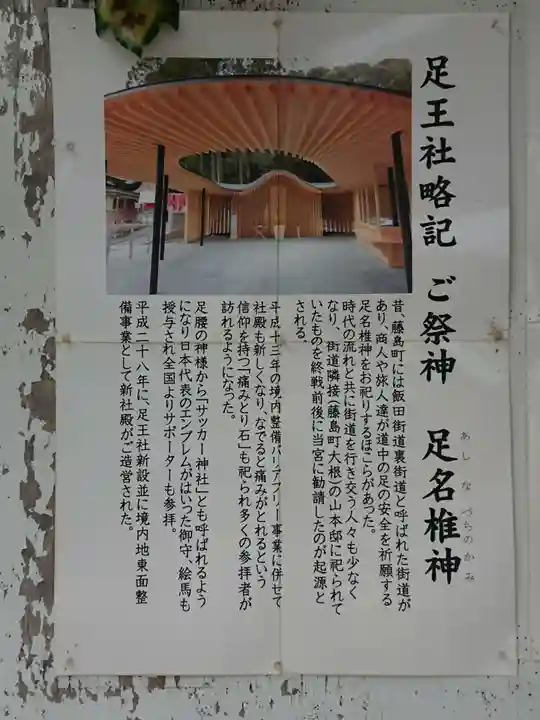 足王社略記　ご祭神　足名椎神
あしなづちのかみ
昔、藤島町には飯田街道裏街道と呼ばれた街道が
あり、商人や旅人達が道中の足の安全を祈願する
足名椎神をお祀りするほこらがあった。
時代の流れと共に街道を行き交う人々も少なく
なり、街道隣接(藤島町大根)の山本邸に祀られて
いたものを終戦前後に当宮に勧請したのが起源と
される。
平成十三年の境内整備バリアフリー事業に併せて
社殿も新しくなり、なでると痛みがとれるという
信仰を持つ「痛みとり石」も祀られ多くの参拝者が
訪れるようになった。
足腰の神様から「サッカー神社」とも呼ばれるよう
になり日本代表のエンブレムがはいった御守、絵馬も
授与され全国よりサポーターも参拝。
平成二十八年に、足王社新設並に境内地東面整
備事業として新社殿がご造営された。